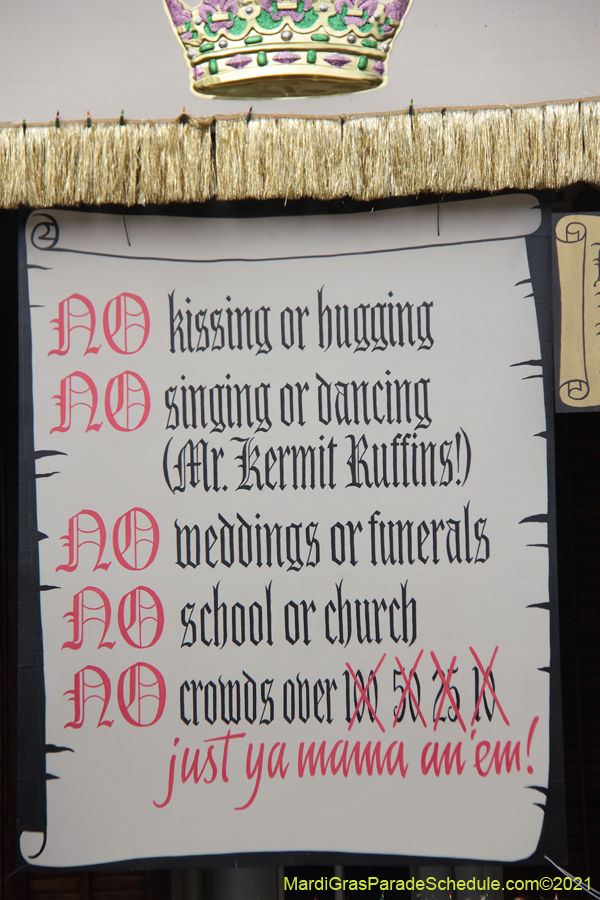 NO kissing or hugging
NO singing or dancing
(Mr. Kermit Ruffins!)
NO weddings or funerals
NO school or church
NO crowds over 100 50 25 10
just ya mama an'em!
MardiGrasParadeSchedule.com©2021